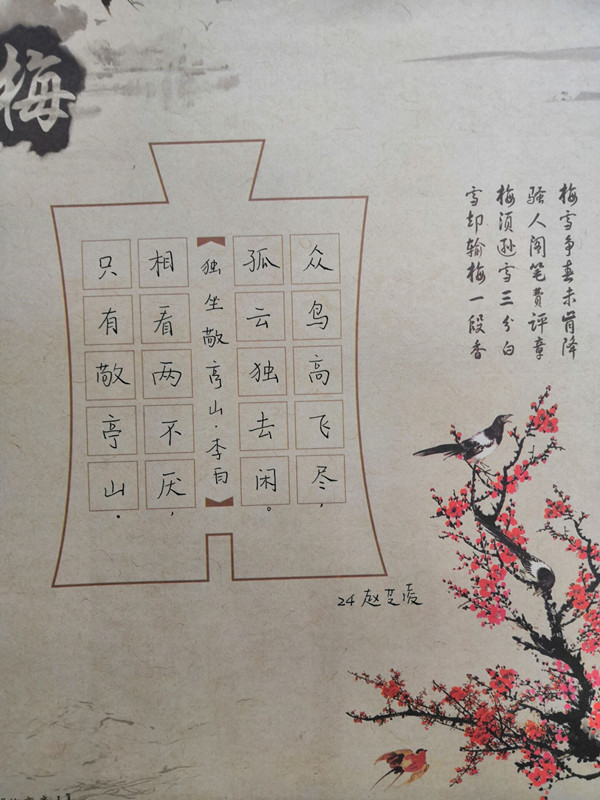 梅
梅雪争春未肯降
骚人阁笔费评章
梅须逊雪三分白
雪却输梅一段香
众鸟高飞尽，
孤云独去闲。
独坐敬亭山·李白
相看两不厌，
只有敬亭山.
24 赵芝凌